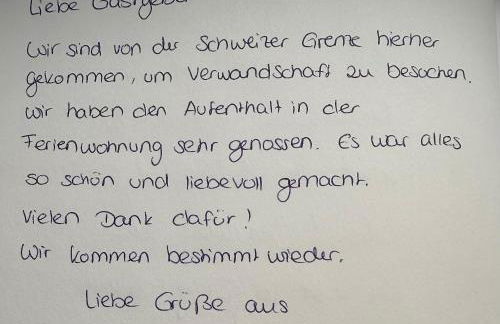 Liebe Gastgeber
Wir sind von der Schweizer Grenze hierher
gekommen, um Verwandschaft zu besuchen.
Wir haben den Aufenthalt in der
Ferienwohnung sehr genossen. Es war alles
so schön und liebevoll gemacht.
Vielen Dank dafür!
Wir kommen bestimmt wieder.
Liebe Grüße aus